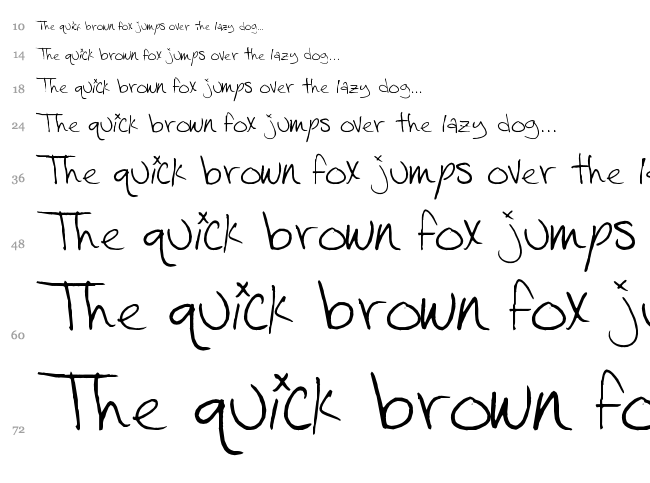 10 The quick brown fox jumps over the lazy dog...
14 The quick brown fox jumps over the lazy dog...
18 The quick brown fox jumps over the lazy dog...
24 The quick brown fox jumps over the lazy dog...
36 The quick brown fox jumps over the l
48 The quick brown fox jumps
60 The quick brown fox ju
72 The quick brown fo